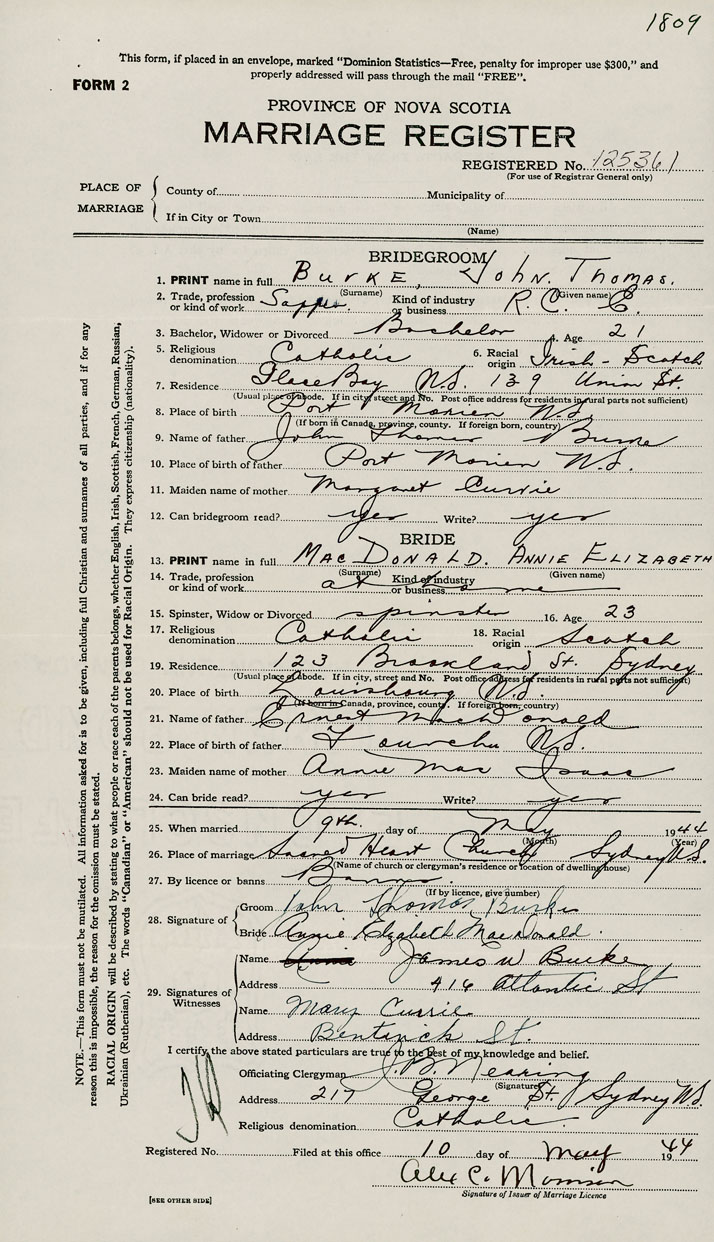 1809
This form, if placed in an envelope, marked "Dominion Statistics—Free, penalty for improper use $300," and
properly addressed will pass through the mail "FREE".
FORM 2
PROVINCE OF NOVA SCOTIA
MARRIAGE REGISTER
REGISTERED No. 125361
(For use of Registrar General only)
PLACE OF MARRIAGE
County of Municipality of
If in City or Town
(Name)
BRIDEGROOM
1. PRINT name in full BURKE, JOHN. THOMAS.
(Surname) (Given name)
2. Trade, profession or kind of work Sapper. Kind of industry or business R. C. E.
3. Bachelor, Widower or Divorced Bachelor 4. Age 21
5. Religious denomination Catholic 6. Racial origin Irish - Scotch
7. Residence Glace Bay N.S. 139 Union St.
(Usual place of abode. If in city, street and No. Post office address for residents in rural parts not sufficient)
8. Place of birth Port Morien N.S.
(If born in Canada, province, county. If foreign born, country)
9. Name of father John Thomas Burke
10. Place of birth of father Port Morien N.S.
11. Maiden name of mother Margaret Currie
12. Can bridegroom read? yes Write? yes
BRIDE
13. PRINT name in full MACDONALD. ANNIE ELIZABETH
(Surname) (Given name)
14. Trade, profession or kind of work at home Kind of industry or business
15. Spinster, Widow or Divorced spinster 16. Age 23
17. Religious denomination Catholic 18. Racial origin Scotch
19. Residence 123 Brookland St. Sydney
(Usual place of abode. If in city, street and No. Post office address for residents in rural parts not sufficient)
20. Place of birth Louisbourg N.S.
(If born in Canada, province, county. If foreign born, country)
21. Name of father Ernest MacDonald
22. Place of birth of father Fourchu N.S.
23. Maiden name of mother Annie Mac Isaac
24. Can bride read? yes Write? yes
25. When married 9th. day of May 1944
(Month) (Year)
26. Place of marriage Sacred Heart Church Sydney N.S.
(Name of church or clergyman's residence or location of dwelling house)
27. By licence or banns Banns.
(If by licence, give number)
28. Signature of
Groom John Thomas Burke
Bride Annie Elizabeth MacDonald.
29. Signatures of Witnesses
Name James W Burke
Address 416 Atlantic St
Name Mary Currie
Address Bentinck St.
I certify the above stated particulars are true to the best of my knowledge and belief.
Officiating Clergyman J. B. Nearing
(Signature)
Address 217 George St. Sydney N.S.
Religious denomination Catholic.
Registered No. Filed at this office 10 day of May 1944
Alex C. Morrison
Signature of Issuer of Marriage Licence
[SEE OTHER SIDE]
NOTE.—This form must not be mutilated. All information asked for is to be given, including full Christian and surnames of all parties, and if for any
reason this is impossible, the reason for the omission must be stated.
RACIAL ORIGIN will be described by stating to what people or race each of the parents belongs, whether English, Irish, Scottish, French, German, Russian,
Ukrainian (Ruthenian), etc. The words "Canadian" or "American" should not be used for Racial Origin. They express citizenship (nationality).